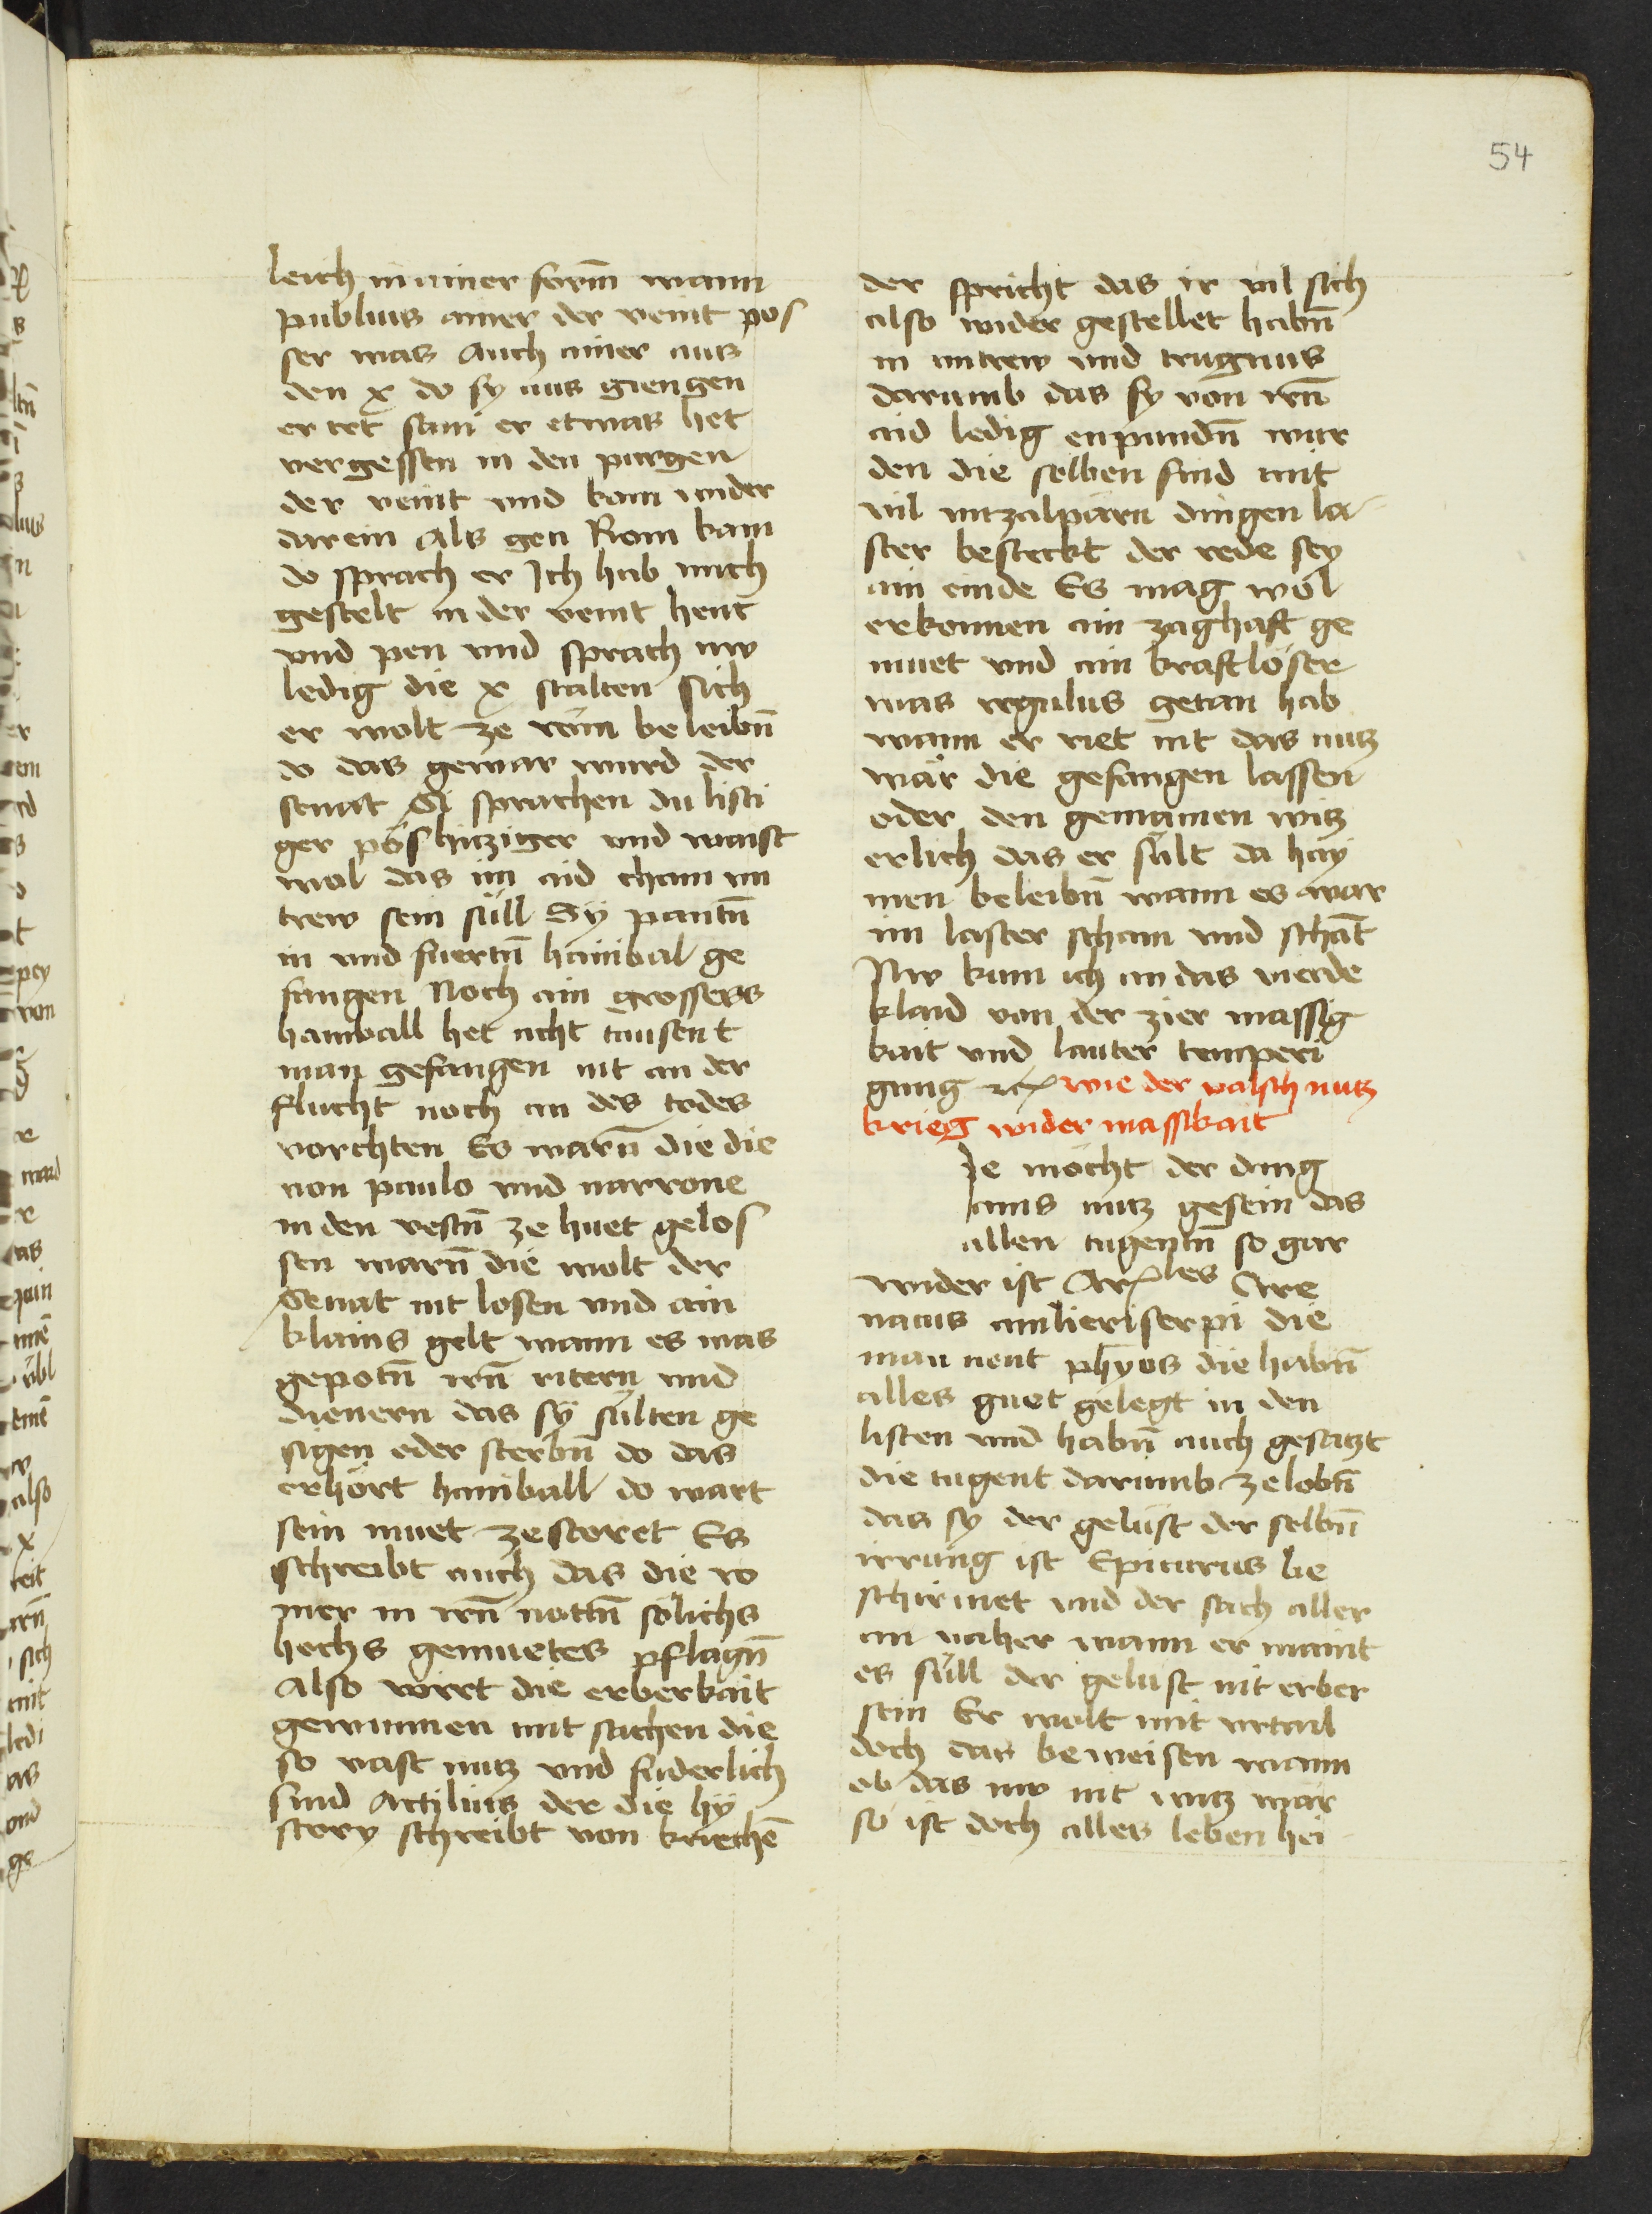 54
leich in ainer form̄ wann
publius ainer der veint pos
ser was Auch ainer aus
den x do sy aus giengen
er tet sam er etwas het
vergessen in den purgen
der veint vnd kam wider
darein Als gen Rom kam
do sprach er Ich hab mich
gestelt in der veint hent
vnd pen vnd sprach nw
ledig die x stalten sich
er wolt ze rom beleibn̄
do das gewar wurd der
senat Si sprachen du listi
ger poshitziger vnd waist
wol das im aid cham vn
trew sein sull Sÿ pantn̄
in vnd fuertn̄ hanibal ge
fangen Noch ain grossers
haniball het acht tausent
man gefangen nit an der
flucht noch an des todes
vorchten Es warn̄ die die
von paulo vnd varrone
in den vestn̄ ze huet gelos
sen warn̄ die wolt der
Senat nit losen vnd ain
klains gelt wann es was
gepotn̄ irn̄ ritern vnd
dienern das sÿ sulten ge
sigen oder sterbn̄ do das
erhört haniball do wart
sein muet zestoret Es
schreibt auch das die ro
mer in irn̄ nottn̄ solichs
hochs gemuetes pflagn̄
Also wirt die erberkait
gewunnen mit sachen die
so vast nutz vnd fuderlich
sind Actilius der die hÿ
story schreibt von kriechē
der spricht das ir vil sich
also wider gestellet habn̄
in vntrew vnd trugnus
darumb das sy von irn̄
aid ledig enpundn̄ wur
den die selben sind mit
vil vnzalpärn dingen la
ster besteckt der rede sey
ain einde Es mag wol
erkennen ain zaghaft ge
muet vnd ain kraftlöser
was regulus getan hab
wann er riet nit das nutz
wär die gefangen lassen
oder den gemainen nutz
erlich das er sult da hay
men beleibn̄ wann es war
im laster scham vnd schāt
Nw kum ich an das vierde
klaid von der zier massig
kait vnd lauter temperi
gung etc wie der valsch nutz
krieg wider massikait
Je möcht der ding
ains nutz gesein das
allen tugentn̄ so gar
wider ist Arles Cire
naicus anlieriserpi die
man nent phyos die habn̄
alles guet gelegt in den
listen vnd habn̄ auch gesatzt
die tugent darumb ze lobn̄
das sy der gelust der selbn̄
irrung ist Epicurus be
schirmet vnd der sach aller
an vaher wann er maint
es sull der gelust nit erber
sein Er wolt mit vrtail
doch das beweisen wann
ob das nw nit nutz wär
so ist doch alles leben hei